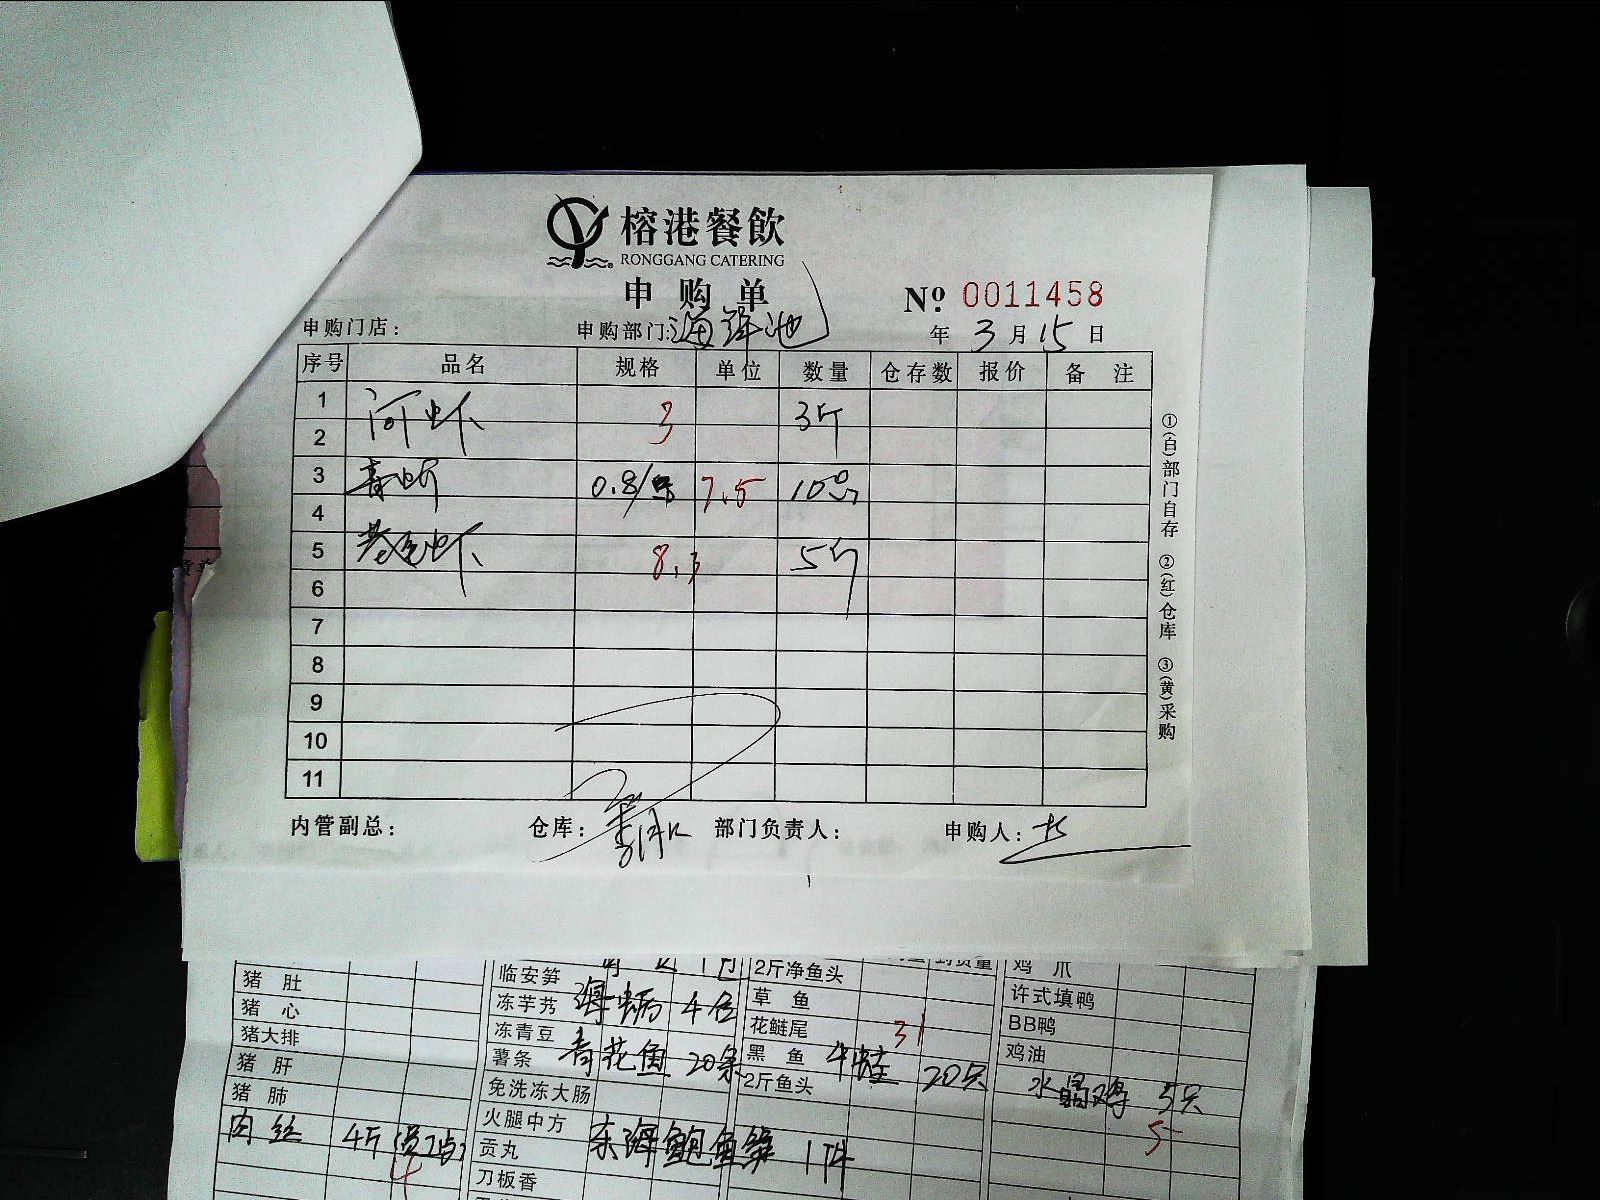 榕港餐飲
RONGGANG CATERING
申购单
№ 0011458
申购门店： 申购部门：海鲜池 年 3 月 15 日
序号 品名 规格 单位 数量 仓存数 报价 备注
1 河虾 3 3斤
2
3 青虾 0.8/ 7.5 10只
4
5 基围虾 8.3 5斤
6
7
8
9
10
11
内管副总： 仓库： 部门负责人： 申购人：
①(白)部门自存 ②(红)仓库 ③(黄)采购
猪肚 临安笋 2斤净鱼头 鸡爪
猪心 冻芋艿 海蛎 4包 草鱼 许式填鸭
猪大排 冻青豆 花鲢尾 31 BB鸭
猪肝 薯条 青花鱼 20条 黑鱼 牛蛙 20只 鸡油
猪肺 免洗冻大肠 2斤鱼头 水晶鸡 5只
肉丝 4斤(员工) 火腿中方 5
4 贡丸 东海鲍鱼 1件
刀板香